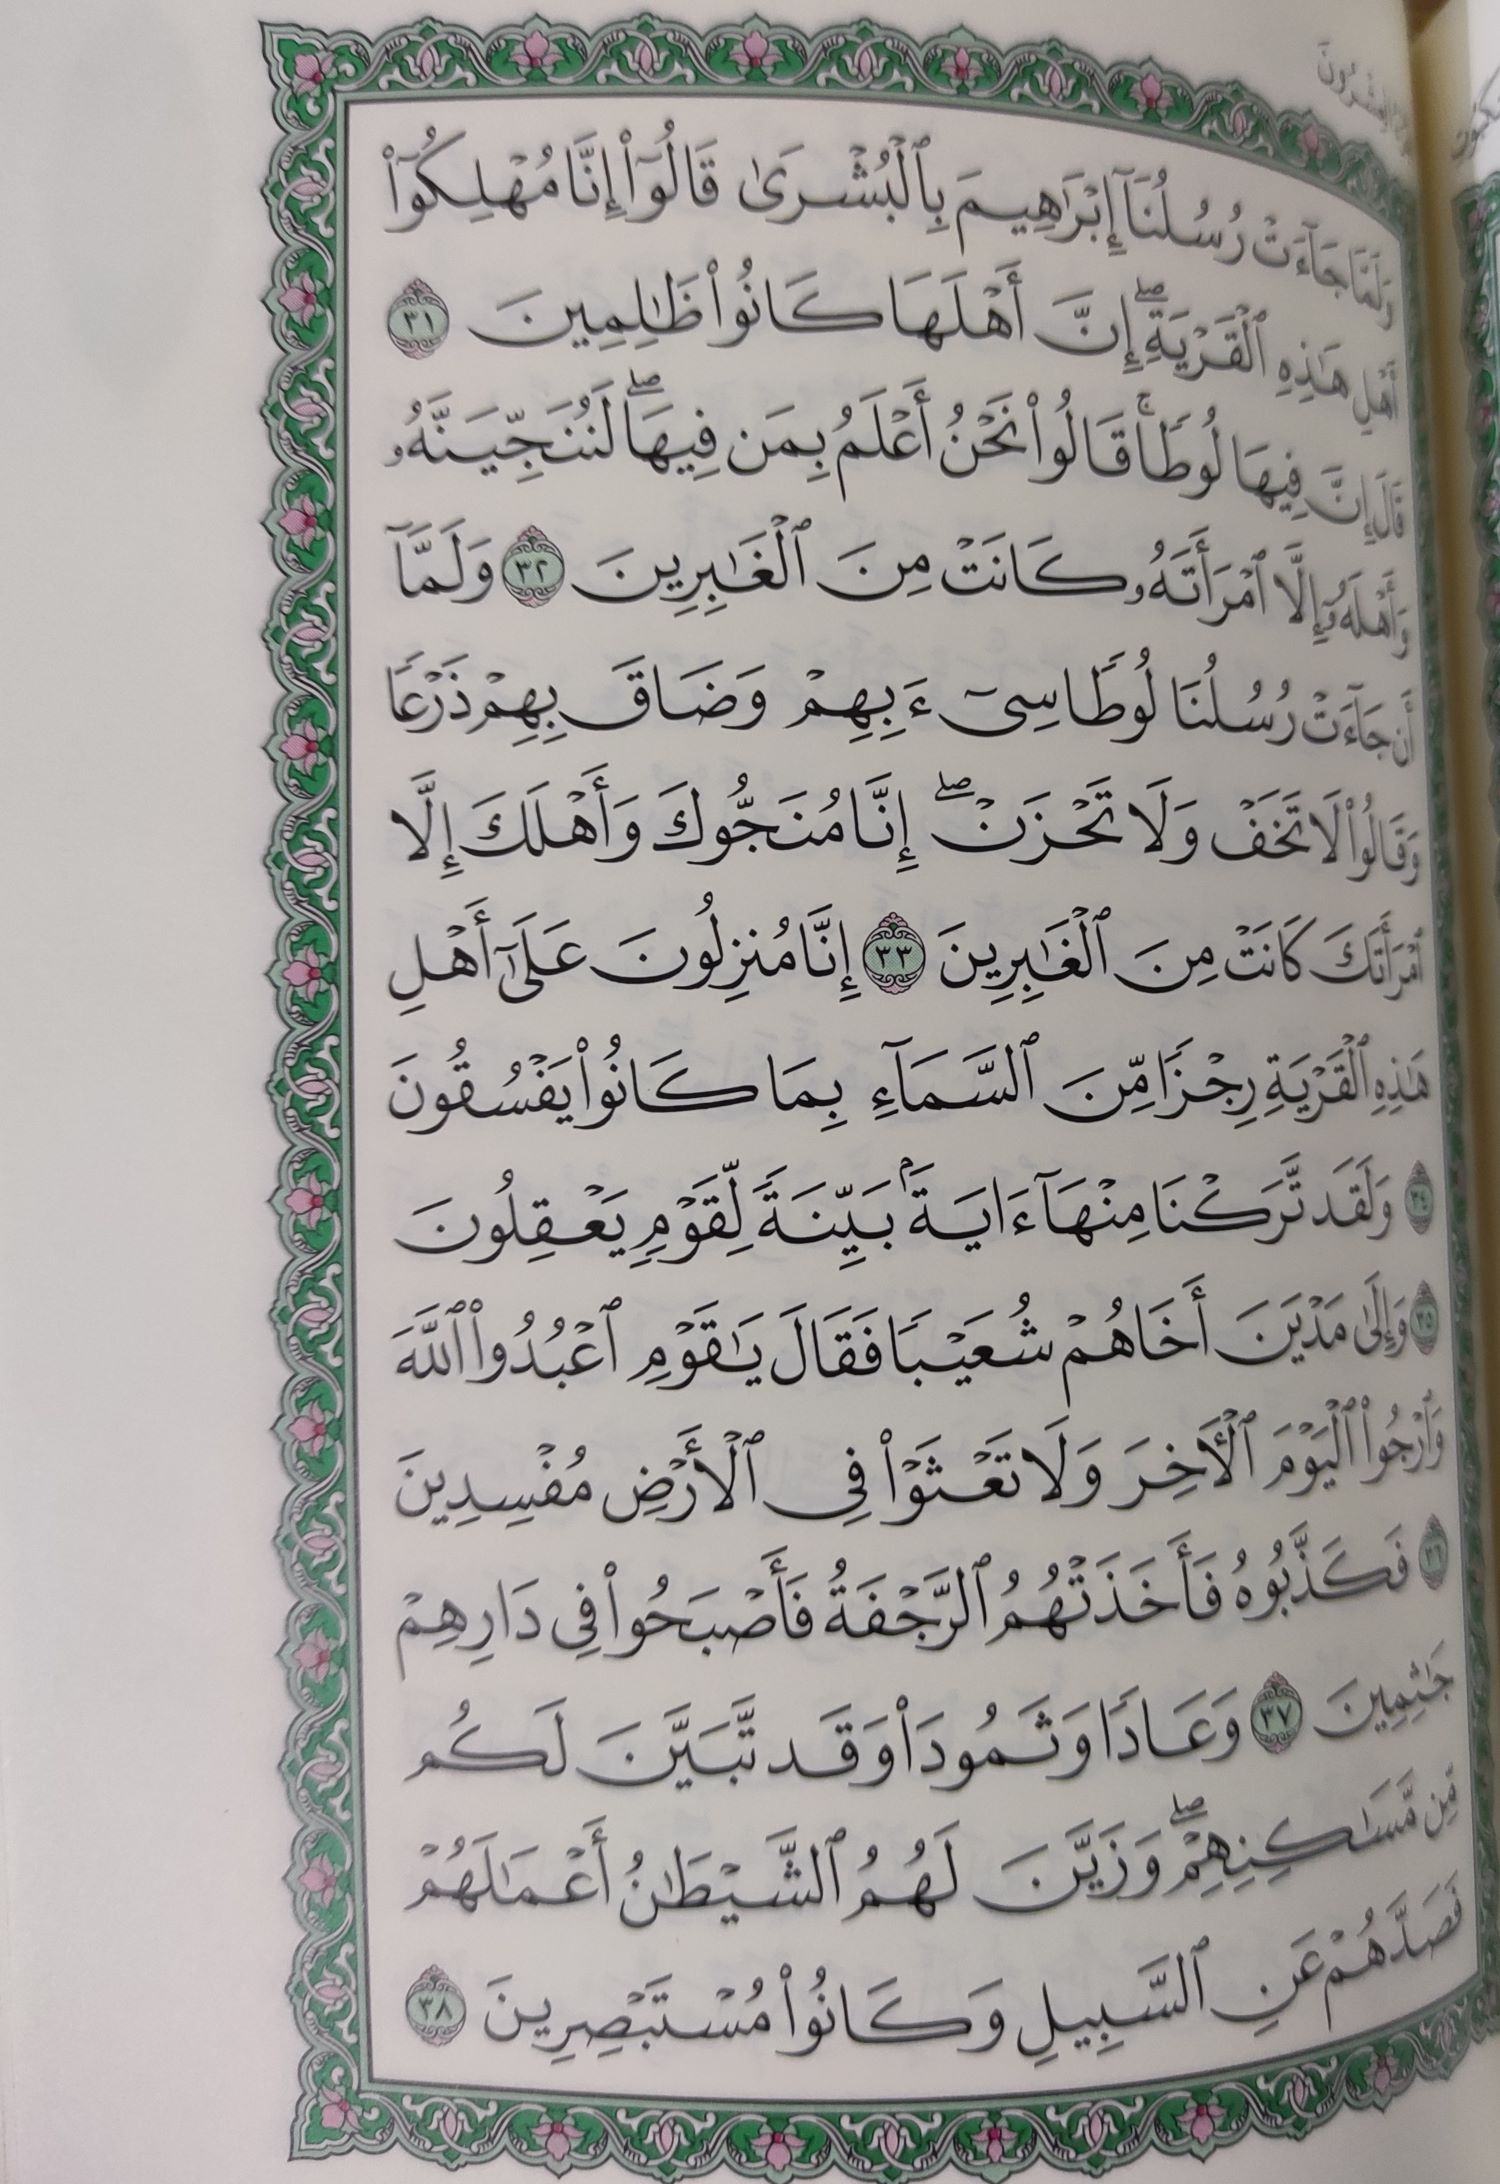 وَلَمَّا جَآءَتْ رُسُلُنَآ إِبْرَٰهِيمَ بِٱلْبُشْرَىٰ قَالُوٓا۟ إِنَّا مُهْلِكُوٓا۟
أَهْلِ هَٰذِهِ ٱلْقَرْيَةِ ۖ إِنَّ أَهْلَهَا كَانُوا۟ ظَٰلِمِينَ ٣١
قَالَ إِنَّ فِيهَا لُوطًا ۚ قَالُوا۟ نَحْنُ أَعْلَمُ بِمَن فِيهَا ۖ لَنُنَجِّيَنَّهُۥ
وَأَهْلَهُۥٓ إِلَّا ٱمْرَأَتَهُۥ كَانَتْ مِنَ ٱلْغَٰبِرِينَ ٣٢ وَلَمَّآ
أَن جَآءَتْ رُسُلُنَا لُوطًا سِىٓءَ بِهِمْ وَضَاقَ بِهِمْ ذَرْعًا
وَقَالُوا۟ لَا تَخَفْ وَلَا تَحْزَنْ ۖ إِنَّا مُنَجُّوكَ وَأَهْلَكَ إِلَّا
ٱمْرَأَتَكَ كَانَتْ مِنَ ٱلْغَٰبِرِينَ ٣٣ إِنَّا مُنزِلُونَ عَلَىٰٓ أَهْلِ
هَٰذِهِ ٱلْقَرْيَةِ رِجْزًا مِّنَ ٱلسَّمَآءِ بِمَا كَانُوا۟ يَفْسُقُونَ
٣٤ وَلَقَد تَّرَكْنَا مِنْهَآ ءَايَةًۢ بَيِّنَةً لِّقَوْمٍ يَعْقِلُونَ
٣٥ وَإِلَىٰ مَدْيَنَ أَخَاهُمْ شُعَيْبًا فَقَالَ يَٰقَوْمِ ٱعْبُدُوا۟ ٱللَّهَ
وَٱرْجُوا۟ ٱلْيَوْمَ ٱلْـَٔاخِرَ وَلَا تَعْثَوْا۟ فِى ٱلْأَرْضِ مُفْسِدِينَ
٣٦ فَكَذَّبُوهُ فَأَخَذَتْهُمُ ٱلرَّجْفَةُ فَأَصْبَحُوا۟ فِى دَارِهِمْ
جَٰثِمِينَ ٣٧ وَعَادًا وَثَمُودَا۟ وَقَد تَّبَيَّنَ لَكُم
مِّن مَّسَٰكِنِهِمْ ۖ وَزَيَّنَ لَهُمُ ٱلشَّيْطَٰنُ أَعْمَٰلَهُمْ
فَصَدَّهُمْ عَنِ ٱلسَّبِيلِ وَكَانُوا۟ مُسْتَبْصِرِينَ ٣٨